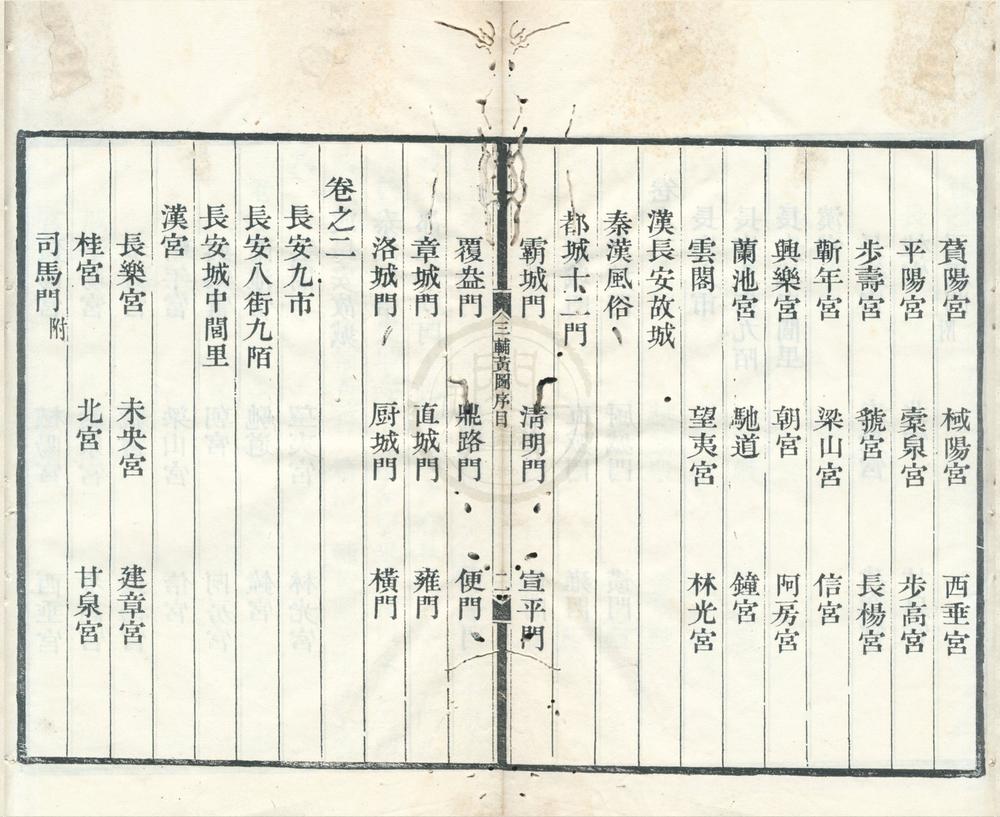 萯陽宮 棫陽宮 西垂宮
平陽宮 橐泉宮 步高宮
步壽宮 虢宮 長楊宮
蘄年宮 梁山宮 信宮
興樂宮 朝宮 阿房宮
蘭池宮 馳道 鐘宮
雲閣 望夷宮 林光宮
漢長安故城
秦漢風俗
都城十二門
霸城門 淸明門 宣平門
三輔黃圖序目 二
覆盎門 鼎路門 便門
章城門 直城門 雍門
洛城門 厨城門 橫門
卷之二
長安九市
長安八街九陌
長安城中閭里
漢宮
長樂宮 未央宮 建章宮
桂宮 北宮 甘泉宮
司馬門附